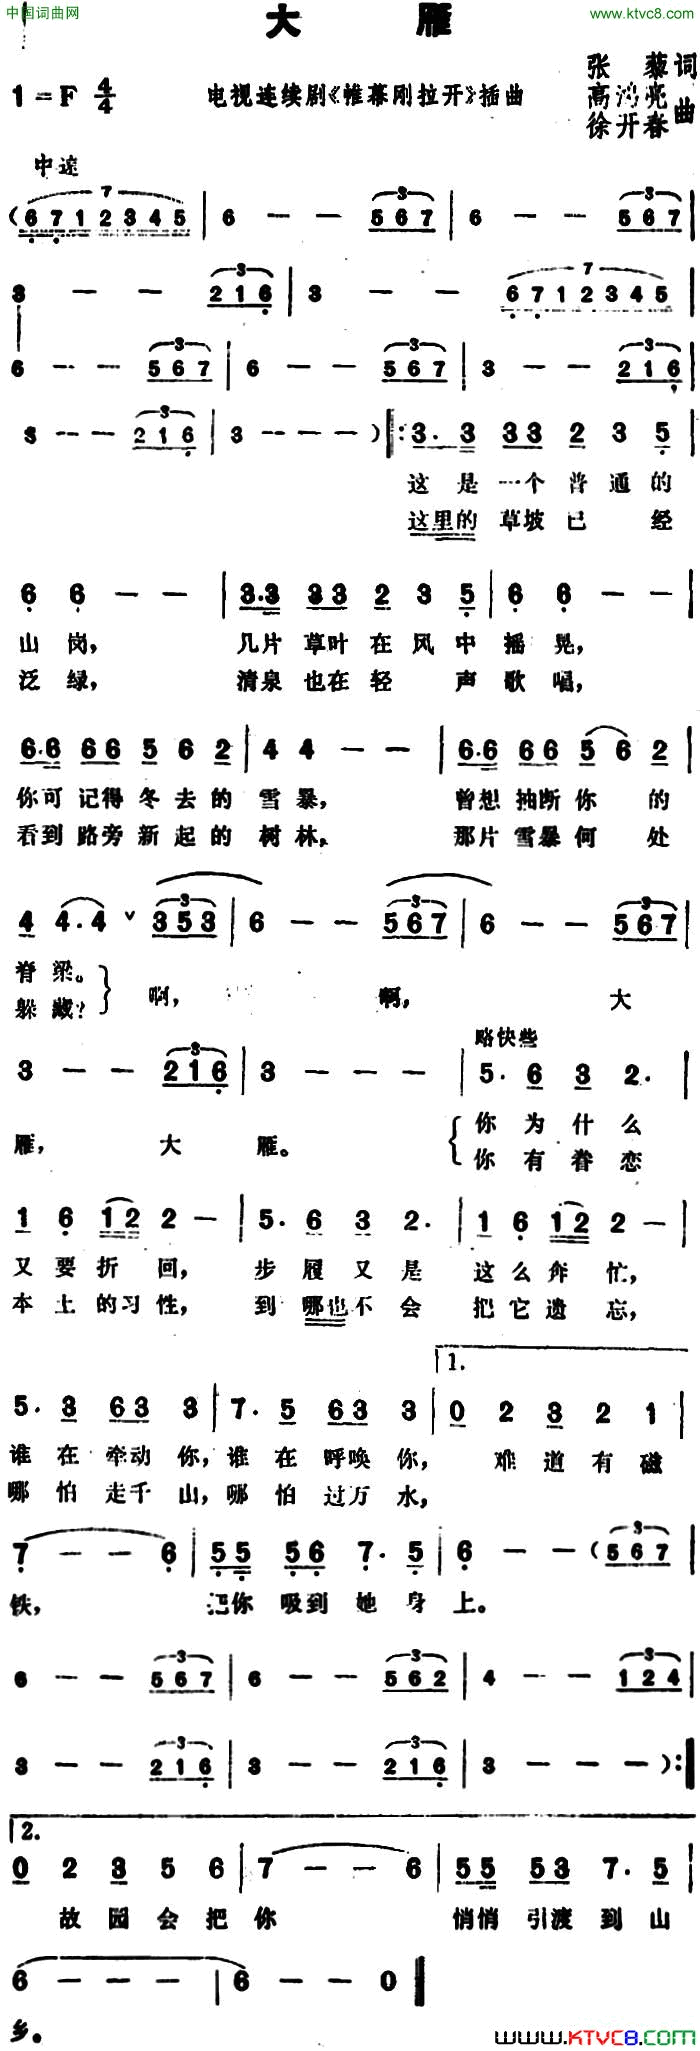 中国词曲网 www.ktvc8.com
大 雁
张藜 词
1=F 4/4 电视连续剧《帷幕刚拉开》插曲 高鸿亮 曲
徐开春
中速
(6 7 1 2 3 4 5 | 6 — — 5 6 7 | 6 — — 5 6 7 |
3 — — 2 1 6 | 3 — — 6 7 1 2 3 4 5 |
6 — — 5 6 7 | 6 — — 5 6 7 | 3 — — 2 1 6 |
3 — — 2 1 6 | 3 — — — ) |: 3. 3 3 3 2 3 5 |
这 是 一个 普 通 的
这里的 草坡 已 经
6 6 — — | 3.3 3 3 2 3 5 | 6 6 — — |
山 岗, 几片 草叶 在 风 中 摇 晃,
泛 绿, 清泉 也在 轻 声 歌 唱,
6.6 6 6 5 6 2 | 4 4 — — | 6.6 6 6 5 6 2 |
你可 记得 冬 去 的 雪 暴, 曾想 抽断 你 的
看到 路旁 新 起 的 树 林, 那片 雪暴 何 处
4 4.4 ∨ 3 5 3 | 6 — — 5 6 7 | 6 — — 5 6 7 |
脊 梁。 啊, 啊, 大
躲 藏?
略快些
3 — — 2 1 6 | 3 — — — | 5. 6 3 2. |
雁, 大 雁。 你 为 什 么
你 有 眷 恋
1 6 1 2 2 — | 5. 6 3 2. | 1 6 1 2 2 — |
又 要 折 回, 步 履 又 是 这 么 奔 忙,
本 土 的 习 性, 到 哪也 不 会 把 它 遗 忘,
1.
5. 3 6 3 3 | 7. 5 6 3 3 | 0 2 3 2 1 |
谁 在 牵动 你, 谁 在 呼唤 你, 难 道 有 磁
哪 怕 走千 山, 哪 怕 过万 水,
7 — — 6 | 5 5 5 5 6 7. 5 | 6 — — (5 6 7 |
铁, 把你 吸到 她 身 上。
6 — — 5 6 7 | 6 — — 5 6 2 | 4 — — 1 2 4 |
3 — — 2 1 6 | 3 — — 2 1 6 | 3 — — — ) :|
2.
0 2 3 5 6 | 7 — — 6 | 5 5 5 5 3 7. 5 |
故 园 会 把 你 悄悄 引渡 到 山
6 — — — | 6 — — 0 ‖
乡。
www.KTVC8.com